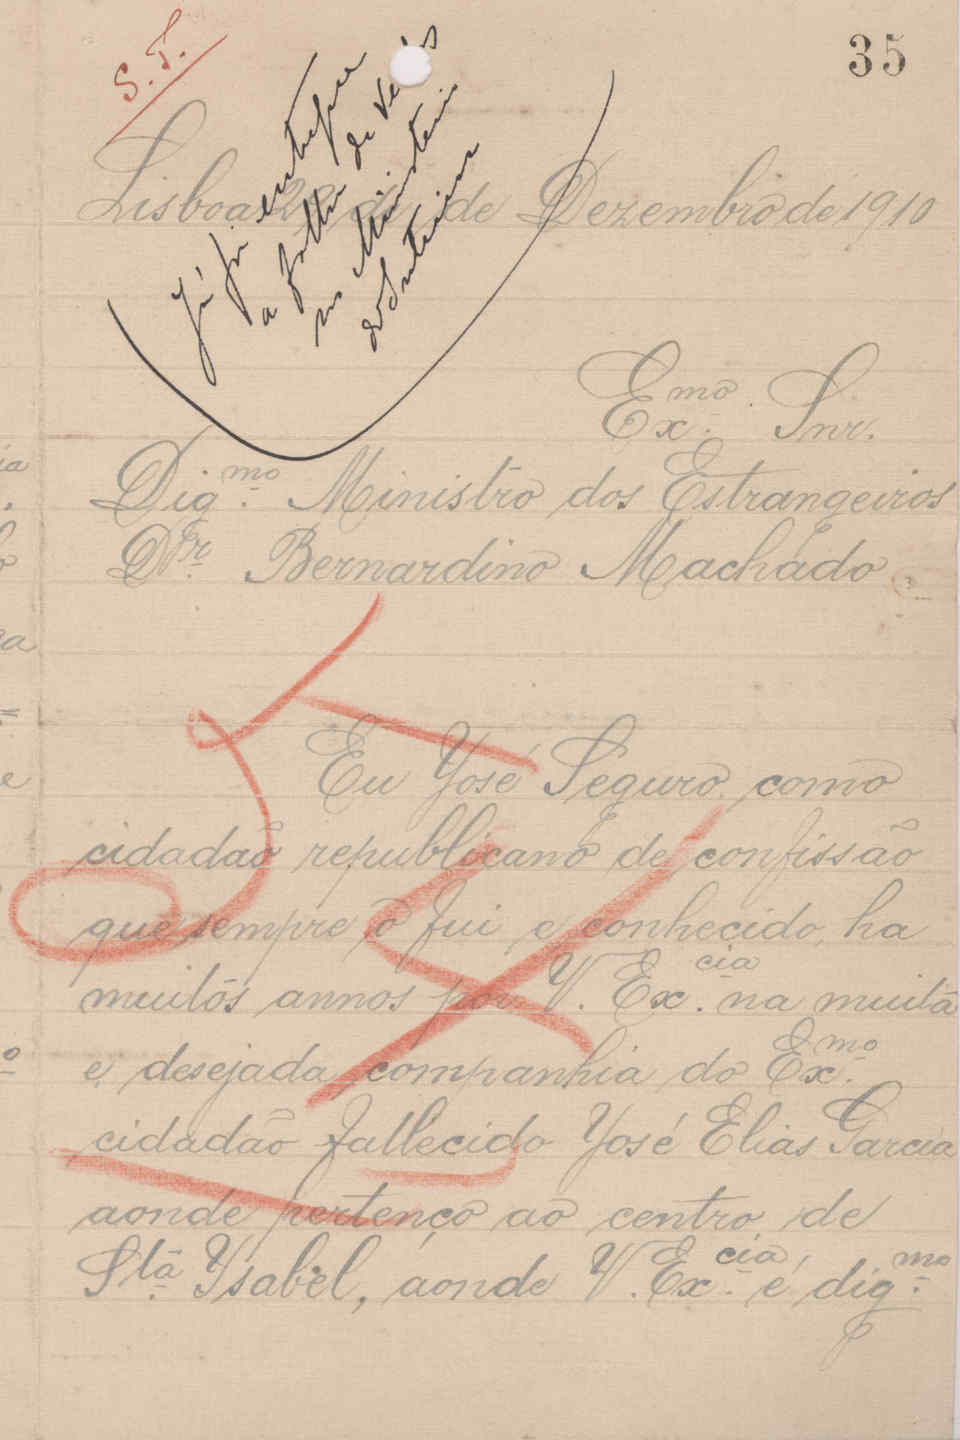 35
S. T.
Já foi entregue
a folha de
no Ministerio
do Interior
Lisboa de Dezembro de 1910
Ex.mo Snr.
Dig.mo Ministro dos Estrangeiros
Dr. Bernardino Machado
Eu Yosé Seguro como
cidadão republicano de confissão
que sempre o fui e conhecido ha
muitos annos por V. Ex.cia na muita
e desejada companhia do Ex.mo
cidadão fallecido Yosé Elias Garcia
aonde pertenço ao centro de
Sta Ysabel, aonde V. Ex.cia é dig.mo